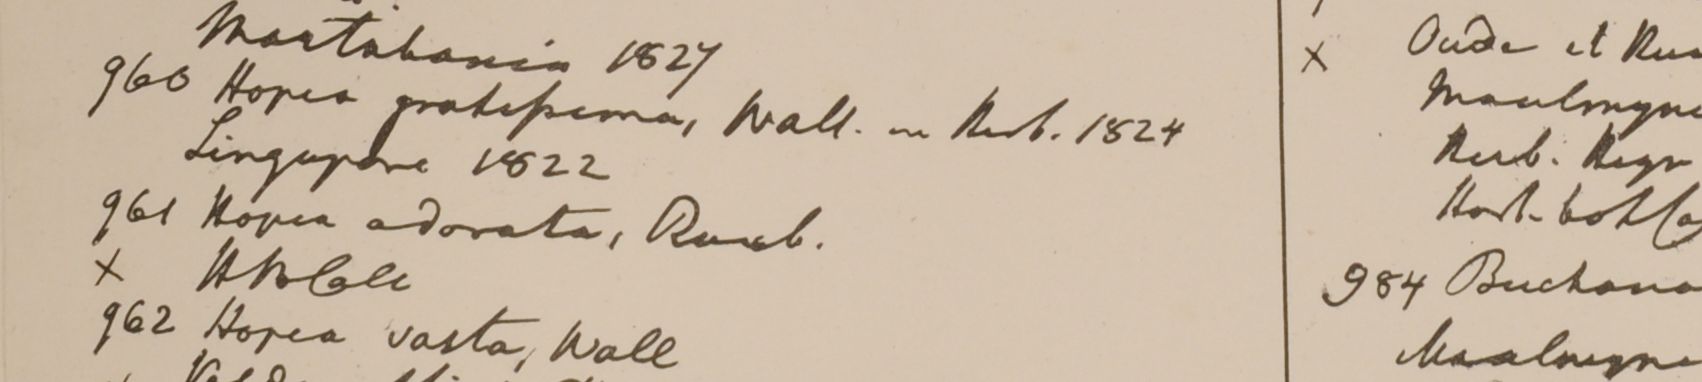 Martabania 1827
960 Hopea gratissima, Wall. in Herb. 1824
Singapore 1822
961 Hopea odorata, Roxb.
x HBCalc
962 Hopea vasta, Wall
x Oude et
Maulmyne
Herb.
Hort. bot
984 Buchana
Maulmyne